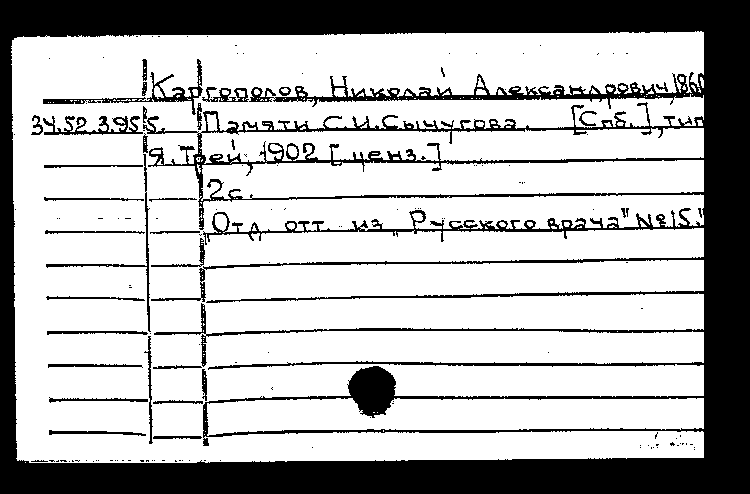 Каргополов, Николай Александрович, 1860
34.52.3.955. Памяти С.И.Сычугова. [Спб.], тип
Я. Трей, 1902 [ценз.]
2с.
"Отд. отт. из "Русского врача" №15."